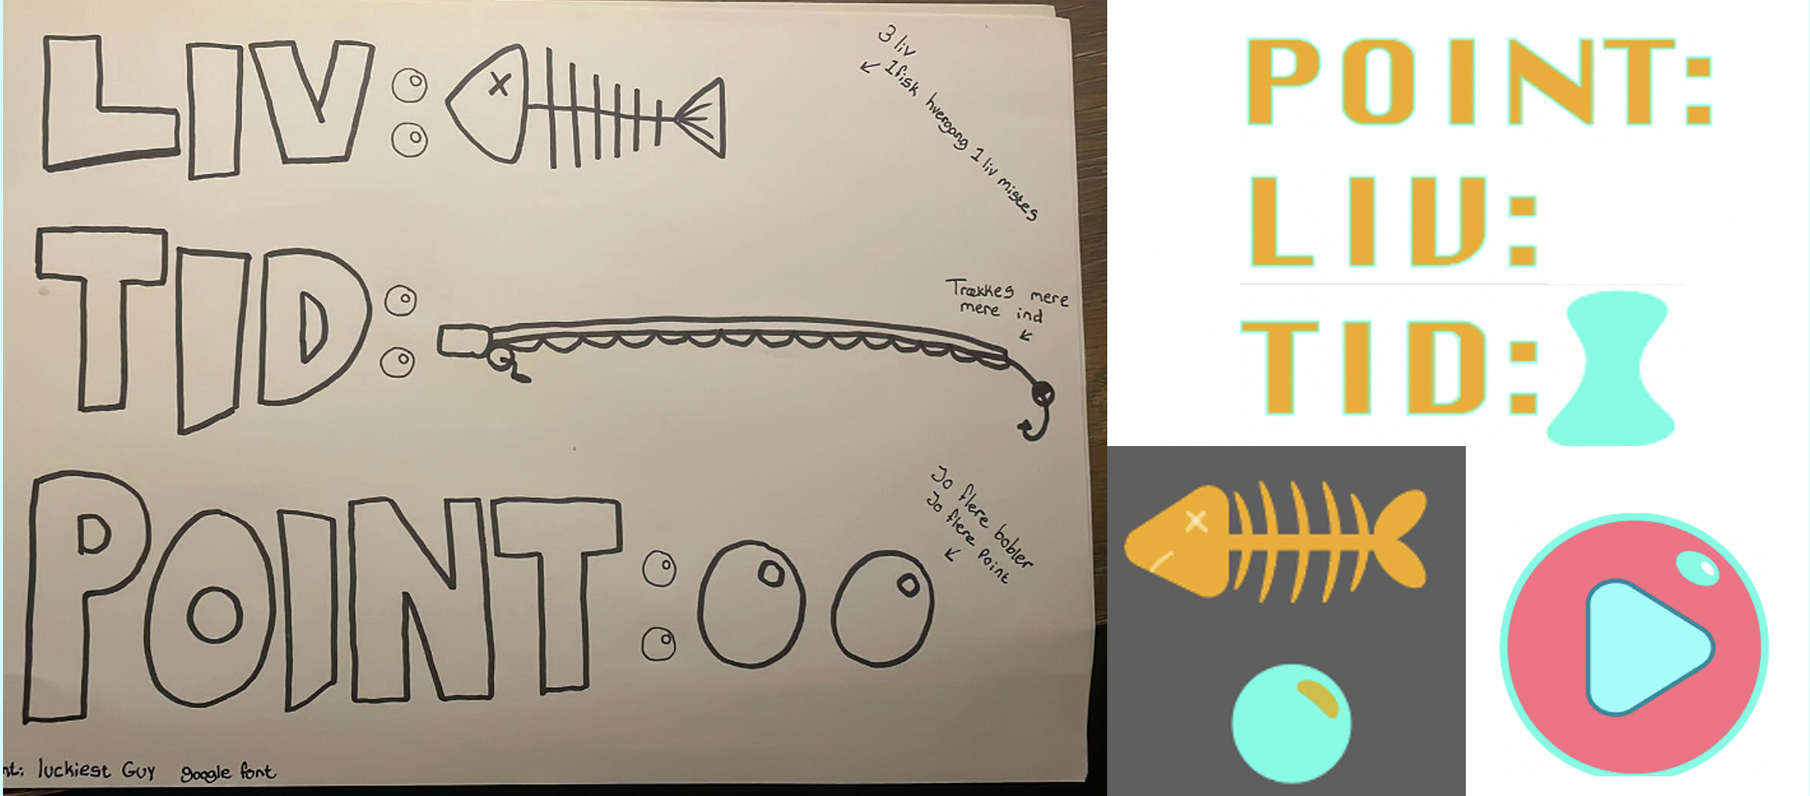 LIV:
3 liv
1 fisk hvergang 1 liv mistes
TID:
Trækkes mere
mere ind
POINT:
Jo flere bobler
Jo flere point
nt: luckiest Guy google font
POINT:
LIV:
TID: